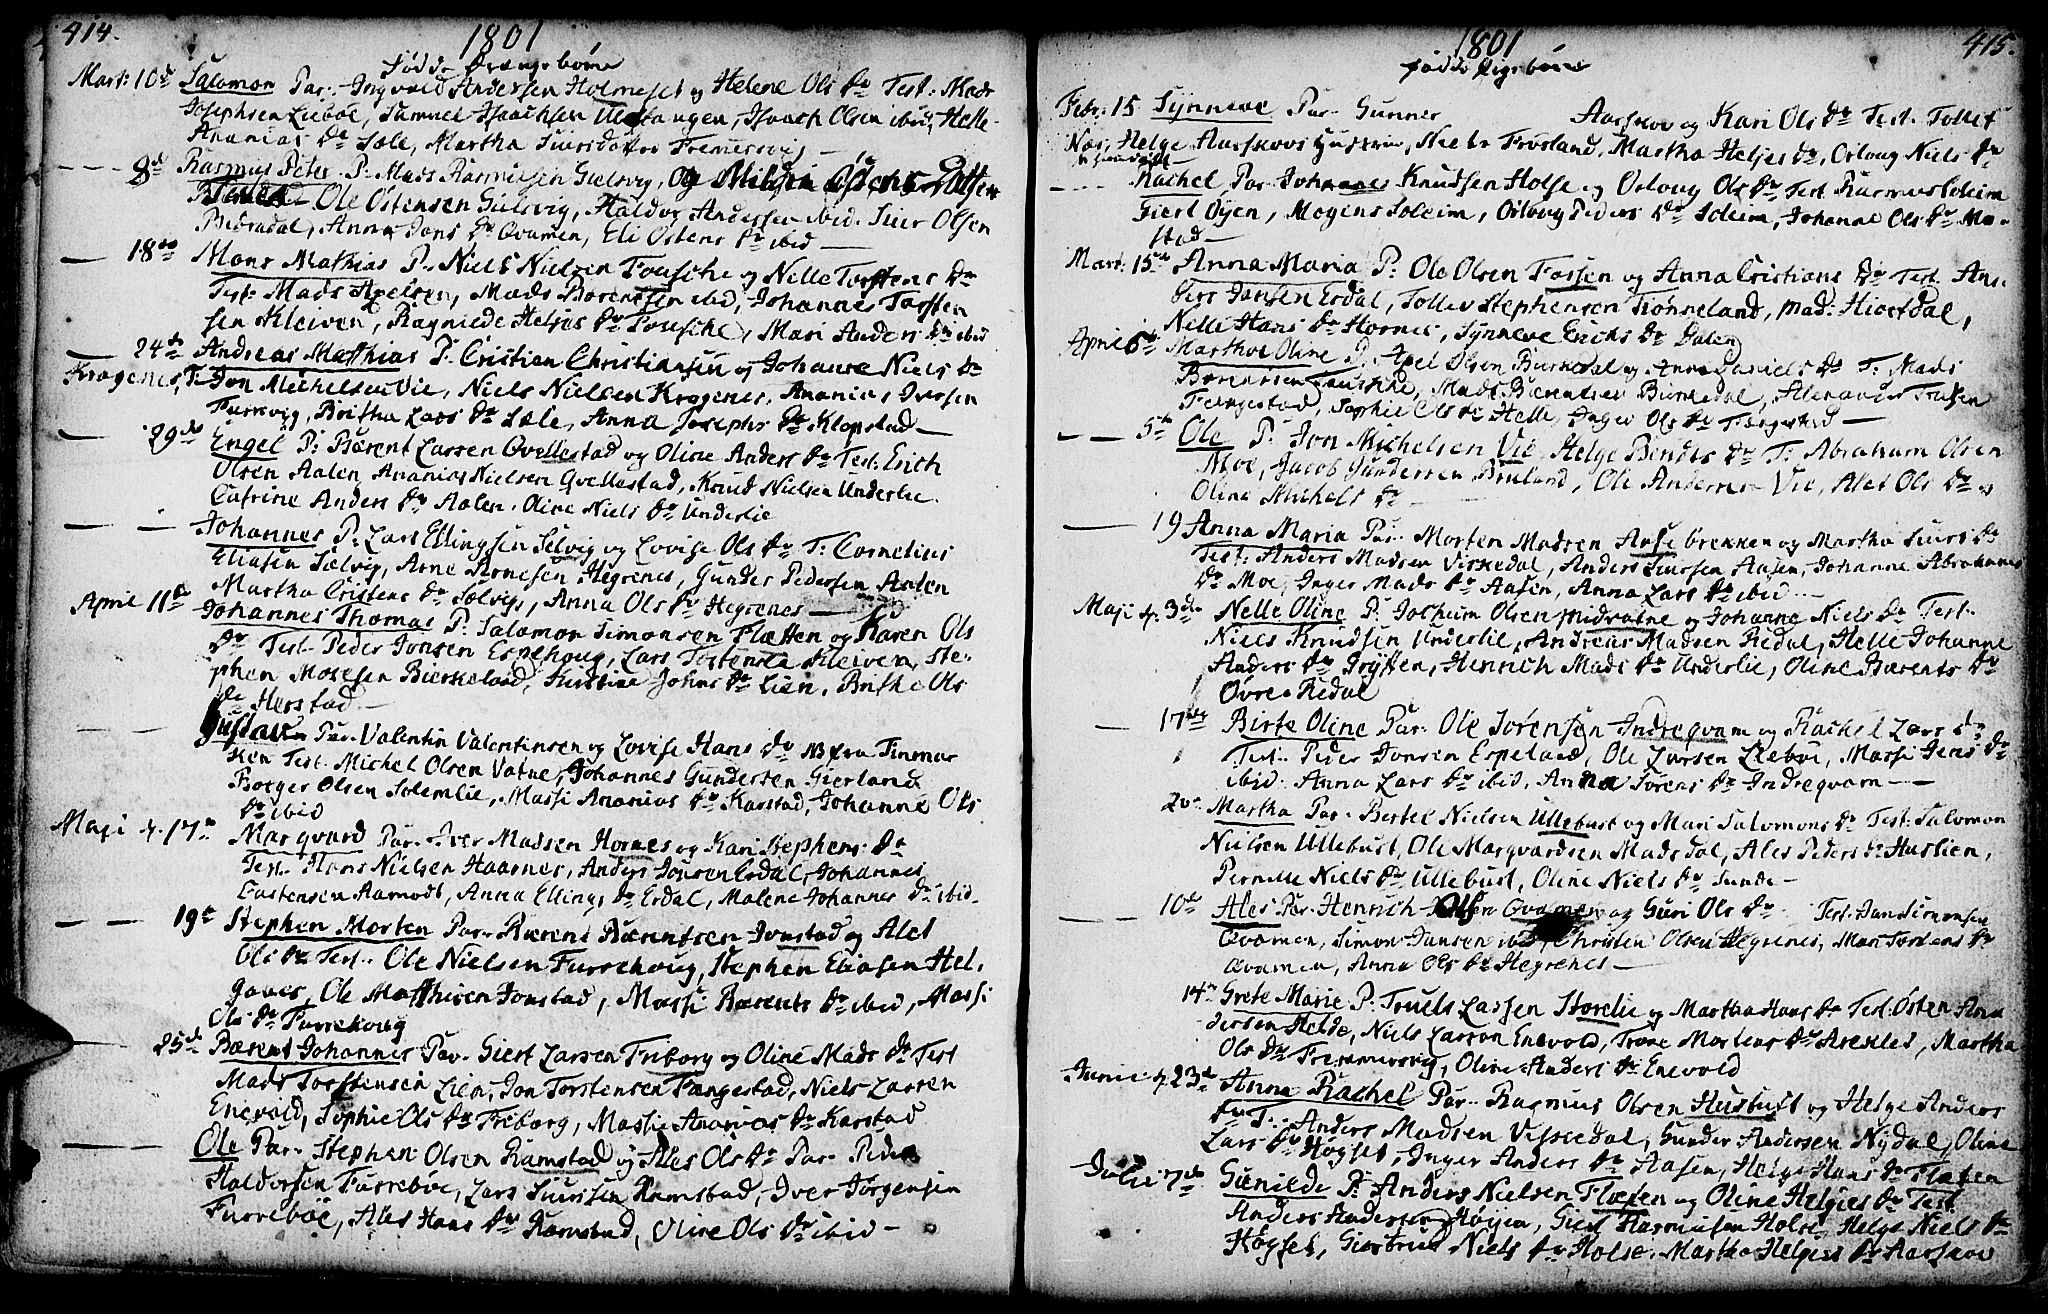 414.
1801
Fødde Drengebørn
Mart: 10de Salomon Par. Ingvald Andersen Holmeset og Helene Ols Dr Test: Mads
Josephsen Liebøe, Samuel Isaachsen Ulltangen, Isaach Olsen ibid, Helle
Ananias Dr Sæle, Martha Siursdatter Fremersvig
8de Rasmus Peter P. Mads Rasmussen Gielsvig, og
Ole Østensen Gielsvig, Haldor Andersen ibid. Siur Olsen
Birdal, Anna Jons Dr Qvamen, Eli Østens Dr ibid
18de Mons Mathias P. Niels Nielsen Fouske og Nelle Torstens Dr
Test: Mads Axelsen, Mads Børentsen ibid, Johannes Torsten
sen Kleiven, Ragnilde Helges Dr Fouske, Mari Anders Dr ibid
24de Andreas Matthias P. Cristien Christiansen og Johanne Niels Dr
Krogenes, T: Jon Michelsen Vie, Niels Nielsen Krogenes, Ananias Iversen
Furevig, Britha Lars Dr Sæle, Anna Josephs Dr Klopstad
29de Engel P. Bærent Larsen Qvellestad og Oline Anders Dr Test: Erich
Olsen Aalen Ananias Nielsen Qvellestad, Knud Nielsen Underlie
Catrine Anders Dr Aalen. Oline Niels Dr Underlie
Johannes P. Lars Ellingsen Selvig og Lovise Ols Dr T: Cornelius
Eliasen Sælvig, Arne Arnesen Hegrenes, Gunder Pedersen Aalen
Martha Cristens Dr Sølvig, Anna Ols Dr Hegrenes
April 11te Johannes Thomas P. Salomon Simonsen Flætten og Karen Ols
Dr Test. Peder Jonsen Espehoug, Lars Tostensen Kleiven, Ste-
phen Mosesen Bierkeland, Kirstine Johns Dr Lien, Brithe Ols
Dr Herstad
Gustav Par. Valentin Valentinsen og Lovise Hans Dr fra Finmar
ken Test. Michel Olsen Vatne, Johannes Gundersen Gierland
Borger Olsen Solemlie, Massi Ananias Dr Karstad, Johanne Ols
Dr ibid
Maji 17 Marqvard Par. Iver Madsen Hornes og Kari Stephens Dr
Test. Hans Nielsen Haarnes, Anders Jonsen Erdal, Johannes
Castensen Aamodt, Anna Ellings Dr Erdal, Malene Johannes Dr ibid.
19de Stephen Morten Par. Bærent Bærentsen Jonstad og Ales
Ols Dr Test. Ole Nielsen Furrehoug, Stephen Eliasen Hel.
gaaes, Ole Matthisen Jonstad, Massi Bærents Dr ibid, Massi
Ols Dr Furrehoug
25de Bærent Johannes Par. Giert Larsen Friborg og Oline Mads Dr Test
Mads Torstensen Lien, Jon Torstensen Fangestad, Niels Larsen
Enevold, Sophie Ols Dr Friborg, Massie Ananias Dr Karstad
Ole Par. Stephen Olsen Ramstad og Ales Ols Dr Par. Peder
Haldorsen Furrebøe, Lars Siursen Ramstad, Iver Jørgensen
Furrebøe, Ales Hans Dr Ramstad, Oline Ols Dr ibid
1801 415.
Fødde Pigebørn
Febr: 15 Synneve Par. Gunner Aarskov og Kari Ols Dr Test. Tollef
Nøs, Helge Aarskovs Hustrue, Niels Frosland, Martha Helges Dr, Orloug Niels Dr
Rachel Par. Johannes Knudsen Holse og Orloug Ols Dr Test. Rasmus Soleim
Giert Øyen, Mogens Soleim, Orloug Peders Dr Soleim, Johanne Ols Dr Mo-
stad
Mart. 15de Anna Maria P. Ole Olsen Fossen og Anna Cristians Dr Test. An-
ders Jonsen Erdal, Tollev Stephensen Trønneland, Mad: Hiortdal,
Nelle Hans Dr Hornes, Synneve Erichs Dr Dalen
April 6te Marthe Oline P. Axel Olsen Birkedal og Anne Daniels Dr T. Mads
Børentsen Fouske, Mads Bærentsen Birkedal, Alexander Truelsen
Fengestad, Sophie Ols Dr Helle, Inger Ols Dr Fengestad
5te Ole P. Jon Michelsen Vie, Helge Bendts Dr T. Abraham Olsen
Moe, Jacob Gundersen Bruland, Ole Andersen Vie, Ales Ols Dr og
Oline Michels Dr
19 Anna Maria Par. Morten Madsen Aasebrekken og Martha Siurs Dr
Test. Anders Madsen Vissedal, Anders Siursen Aasen, Johanne Abrahams
Dr Moe, Inger Mads Dr Aasen, Anna Lars Dr ibid
Maji 3de Nelle Oline P. Jochum Olsen Midvatne og Johanne Niels Dr Test.
Niels Knudsen Underlie, Andreas Madsen Redal, Helle Johanne
Anders Dr Frytten, Henrich Mads Dr Underlie, Oline Bærents Dr
Øvre Redal
17de Birte Oline Par. Ole Sørensen Indreqvam og Rachel Lars Dr
Test. Peder Jonsen Espeland, Ole Larsen Liebøe, Massi Jens Dr
ibid. Anna Lars Dr ibid, Anna Sørens Dr Indreqvam
20de Martha Par. Bertel Nielsen Ullebust og Mari Salomons Dr Test: Salomon
Nielsen Ullebust, Ole Marqvardsen Madsdal, Ales Peders Dr Huslien,
Pernille Niels Dr Ullebust, Oline Niels Dr Sunde
10de Ales Par. Henrich Olsen Qvamen og Guri Ols Dr Test. Jan Simonsen
Qvamen, Simon Jansen ibid, Christen Olsen Hegrenes, Mari Tordens Dr
Qvamen, Anna Ols Dr Hegrenes
14de Grete Marie P. Truels Larsen Storelie og Martha Hans Dr Test: Østen An-
dersen Helde, Niels Larson Enevold, Trone Mortens Dr Arexles, Martha
Ols Dr Fremmersvig, Oline Anders Dr Enevold
Junii 23de Anna Rachel Par. Rasmus Olsen Husbust og Helge Anders
Dr T. Anders Madsen Vissedal, Gunder Andersen Nydal, Oline
Lars Dr Høgset, Inger Anders Dr Aasen, Helge Hans Dr Flaten
Julii 7de Gunilde P. Anders Nielsen Flaten og Oline Helges Dr Test
Anders Andersen Høyen, Giert Rasmusen Holse, Helge Niels Dr
Høgset, Giertrud Niels Dr Holse. Martha Helges Dr Aarskov